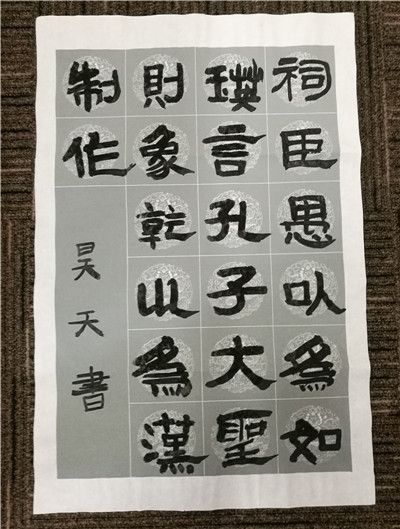 祠臣愚以為如
瑛言孔子大聖
則象乾坤為漢
制作
昊天書